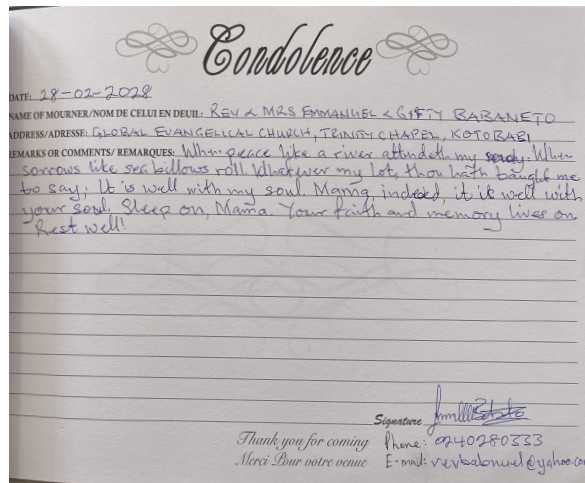 Condolence
DATE: 28-02-2028
NAME OF MOURNER/NOM DE CELUI EN DEUIL: REV & MRS EMMANUEL & GIFTY BABANETO
ADDRESS/ADRESSE: GLOBAL EVANGELICAL CHURCH, TRINITY CHAPEL, KOTOBABI
REMARKS OR COMMENTS/ REMARQUES: When peace like a river attendeth my When
sorrows like sea billows roll. Whatever my lot, thou hath taught me
to say; It is well with my soul. Mama, indeed, it is well with
your soul. Sleep on, Mama. Your faith and memory lives on
Rest well!
Signature
Thank you for coming Phone: 0240280333
Merci Pour votre venue E-mail: revbabnuel@yahoo.com